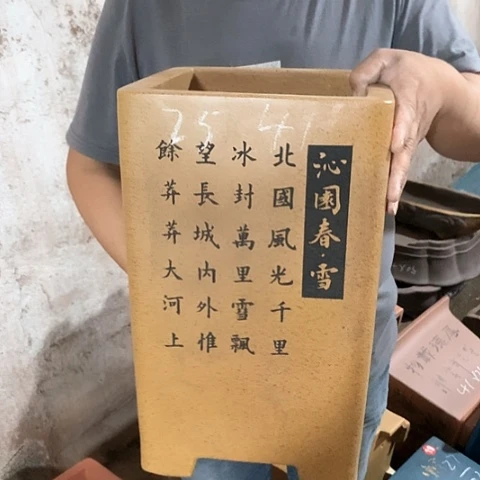 沁園春·雪
北國風光千里
冰封萬里雪飄
望長城内外惟
餘莽莽大河上
25 41